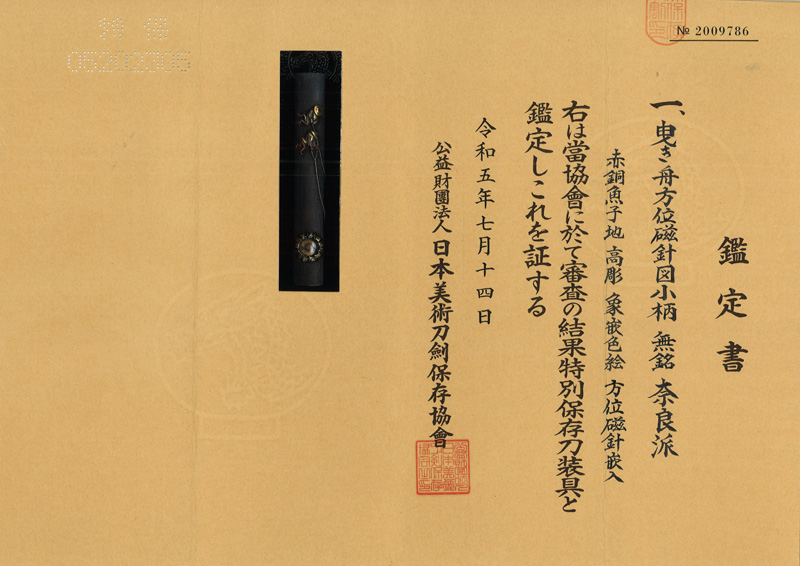 № 2009786
鑑定書
一、曳き舟方位磁針図小柄 無銘 奈良派
赤銅魚子地 高彫 象嵌色絵 方位磁針嵌入
右は當協會に於て審査の結果特別保存刀装具と
鑑定しこれを証する
令和五年七月十四日
公益財團法人 日本美術刀劍保存協會